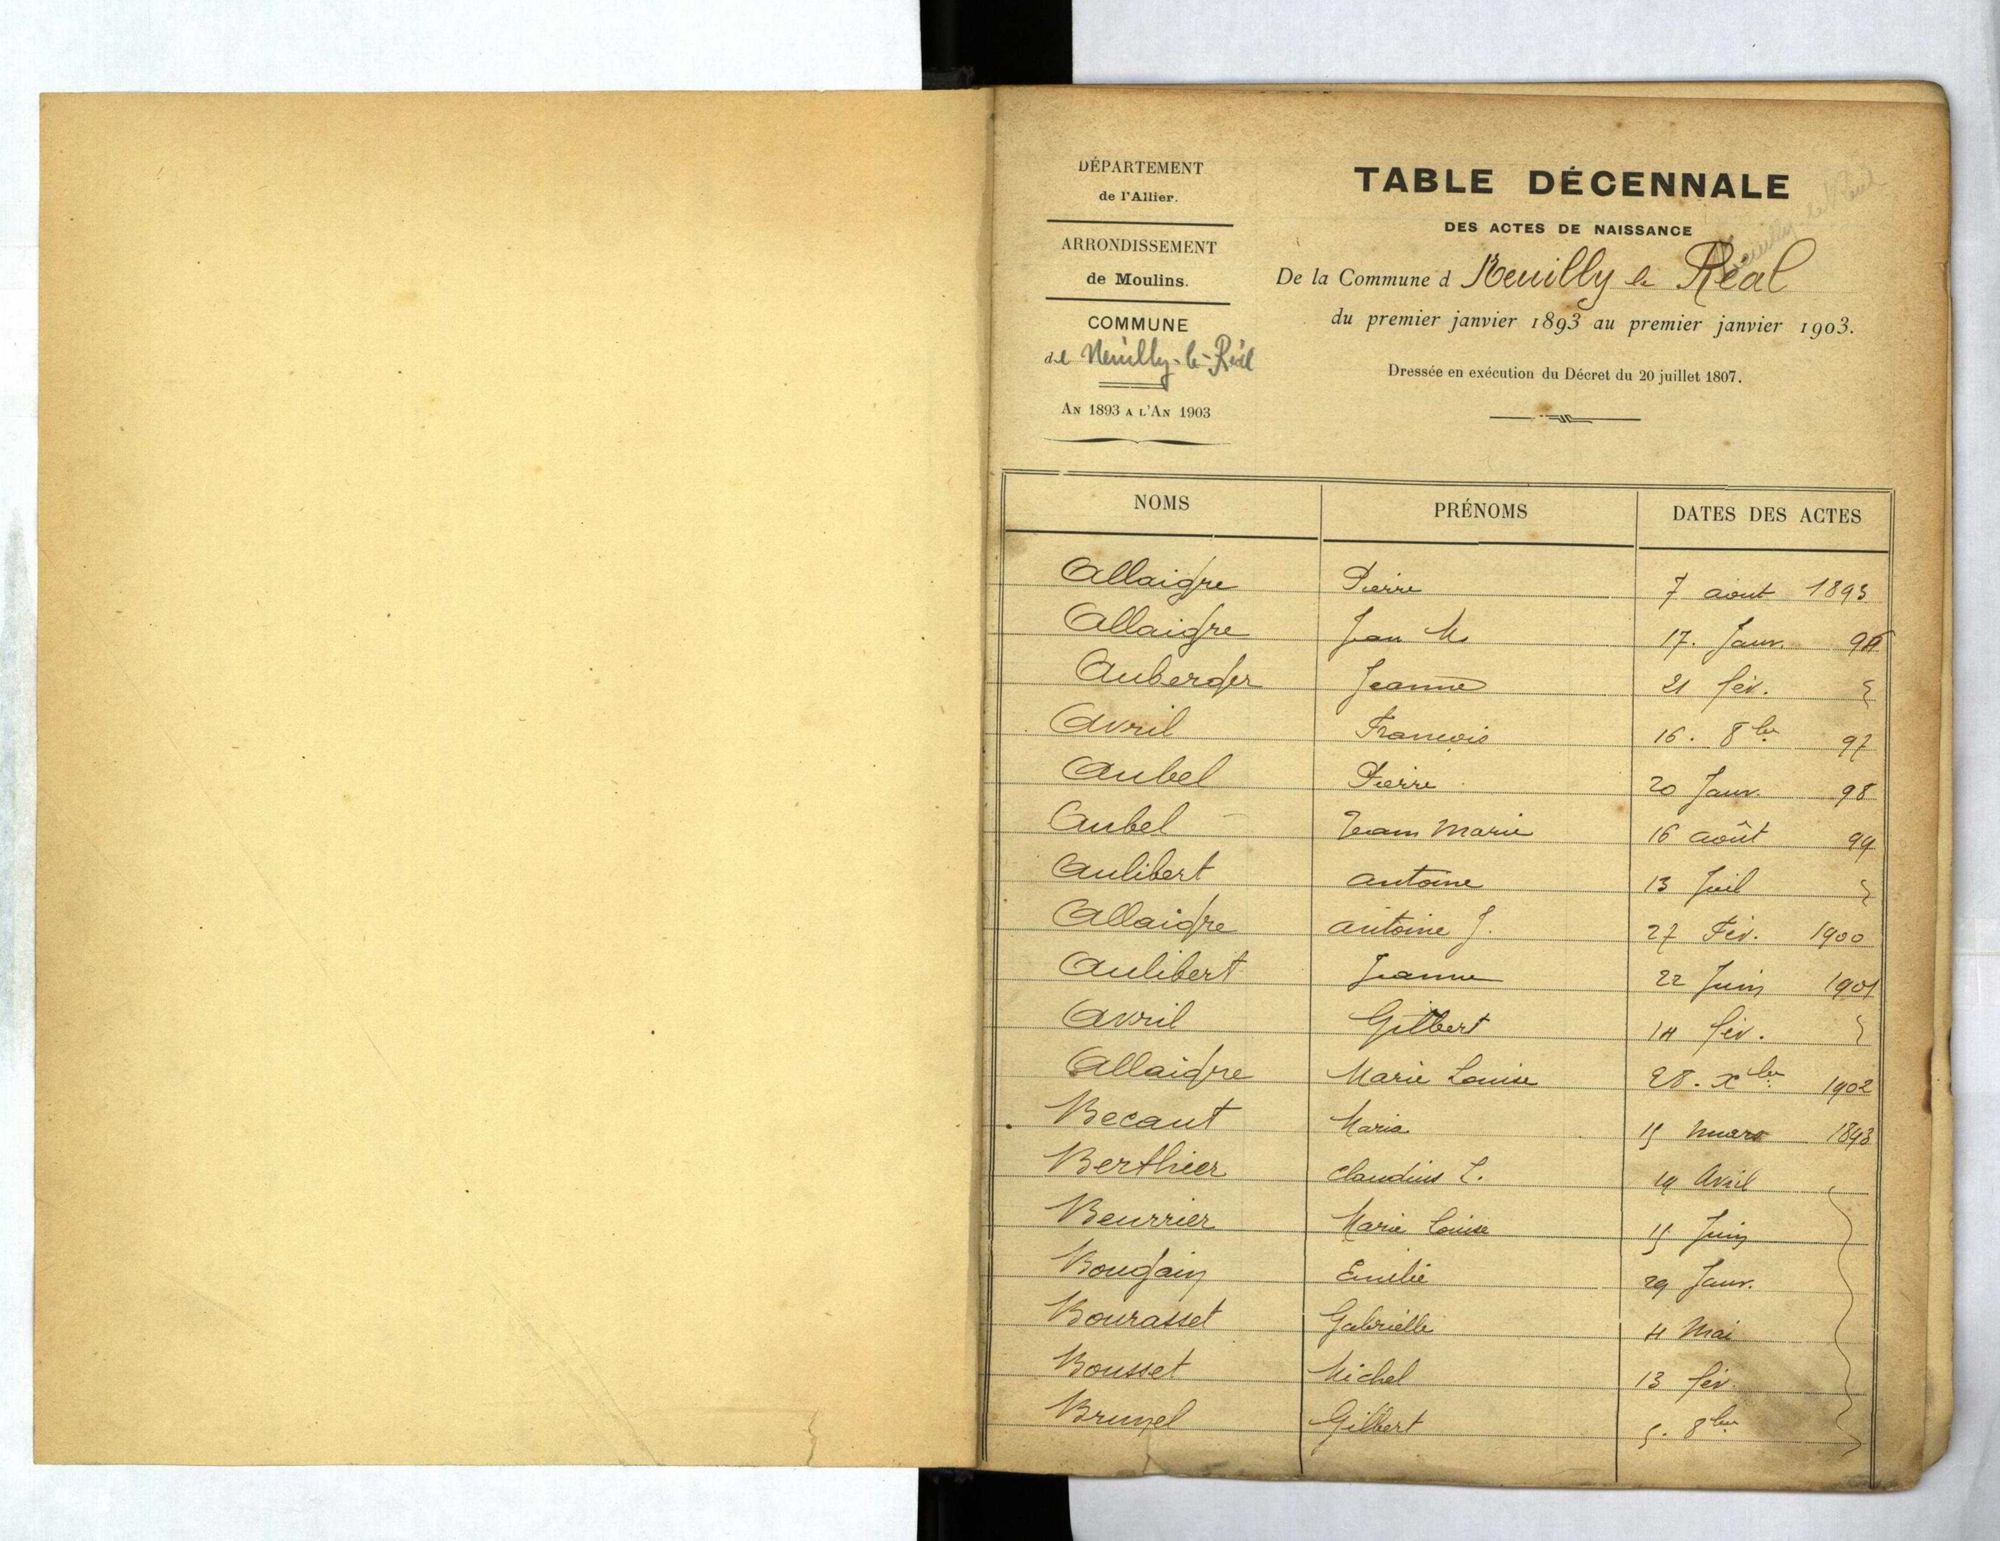 DÉPARTEMENT
de l'Allier.
ARRONDISSEMENT
de Moulins.
COMMUNE
de Neuilly-le-Réal
AN 1893 A L'AN 1903
TABLE DÉCENNALE
DES ACTES DE NAISSANCE
Neuilly le Réal
De la Commune d Neuilly le Réal
du premier janvier 1893 au premier janvier 1903.
Dressée en exécution du Décret du 20 juillet 1807.
NOMS PRÉNOMS DATES DES ACTES
Allaigre Pierre 7 aout 1893
Allaigre Jean M. 17. Janv. 94
Auberger Jeanne 21 fév.
Avril François 16. 8bre 97
Aubel Pierre 20 Janv. 98
Aubel Jean Marie 16 août 99
Aulibert Antoine 13 Juil
Allaigre Antoine J. 27 Fév. 1900
Aulibert Jeanne 22 Juin 1901
Avril Gilbert 14 fév.
Allaigre Marie Louise 28. Xbre 1902
Becaut Maria 15 mars 1893
Berthier Claudius L. 19 Avril
Beurrier Marie Louise 15 Juin
Bougain Emilie 29 Janv.
Bourasset Gabrielle 4 Mai
Bousset Michel 13 fév.
Brunel Gilbert 5. 8bre